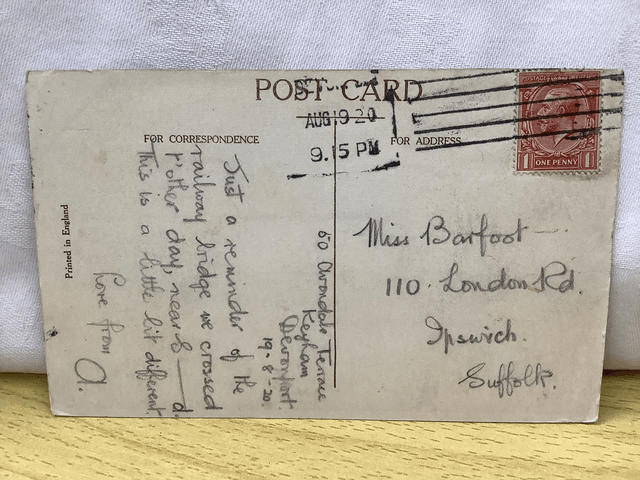 POST CARD
AUG 19 20
9.15 PM
POSTAGE
ONE PENNY
1 1
FOR CORRESPONDENCE
FOR ADDRESS
Printed in England
50 Avondale Terrace
Keyham
Devonport.
19-8-20.
Just a reminder of the
railway bridge we crossed
t'other day, near S——d.
This is a little bit different.
Love from
A.
Miss Barfoot
110 London Rd.
Ipswich.
Suffolk.